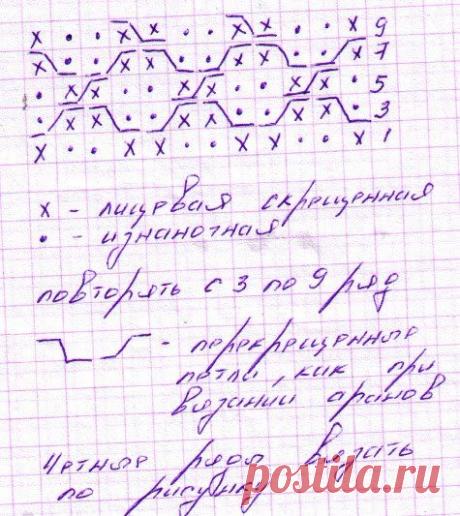 x • • x x • • x x • • x 9
x • • x x • • x x • • x 7
• x x • • x x • • x x • 5
• x x • • x x • • x x • 3
x • • x x • • x x • • x 1
x - лицевая скрещенная
• - изнаночная
повторять с 3 по 9 ряд
- перекрещенные
петли, как при
вязании аранов
Четные ряды вязать
по рисунку
postila.ru